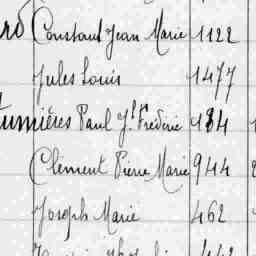 Constant Jean Marie 1122
Jules Louis 1477
umières Paul Jh Frédéric 184
Clément Pierre Marie 944
Joseph Marie 462